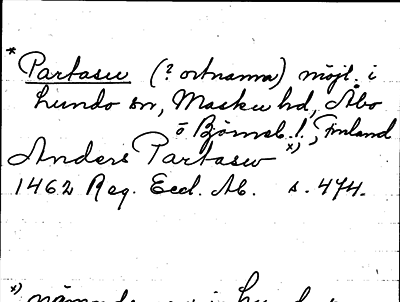 * Partasu (? ortnamn) möjl. i
Lundo sn, Masku hd, Åbo
o Björneb. l., Finland
Anders Partasuo x)
1462 Reg. Eccl. Ab. s. 474.
x) nämndeman i Lundo